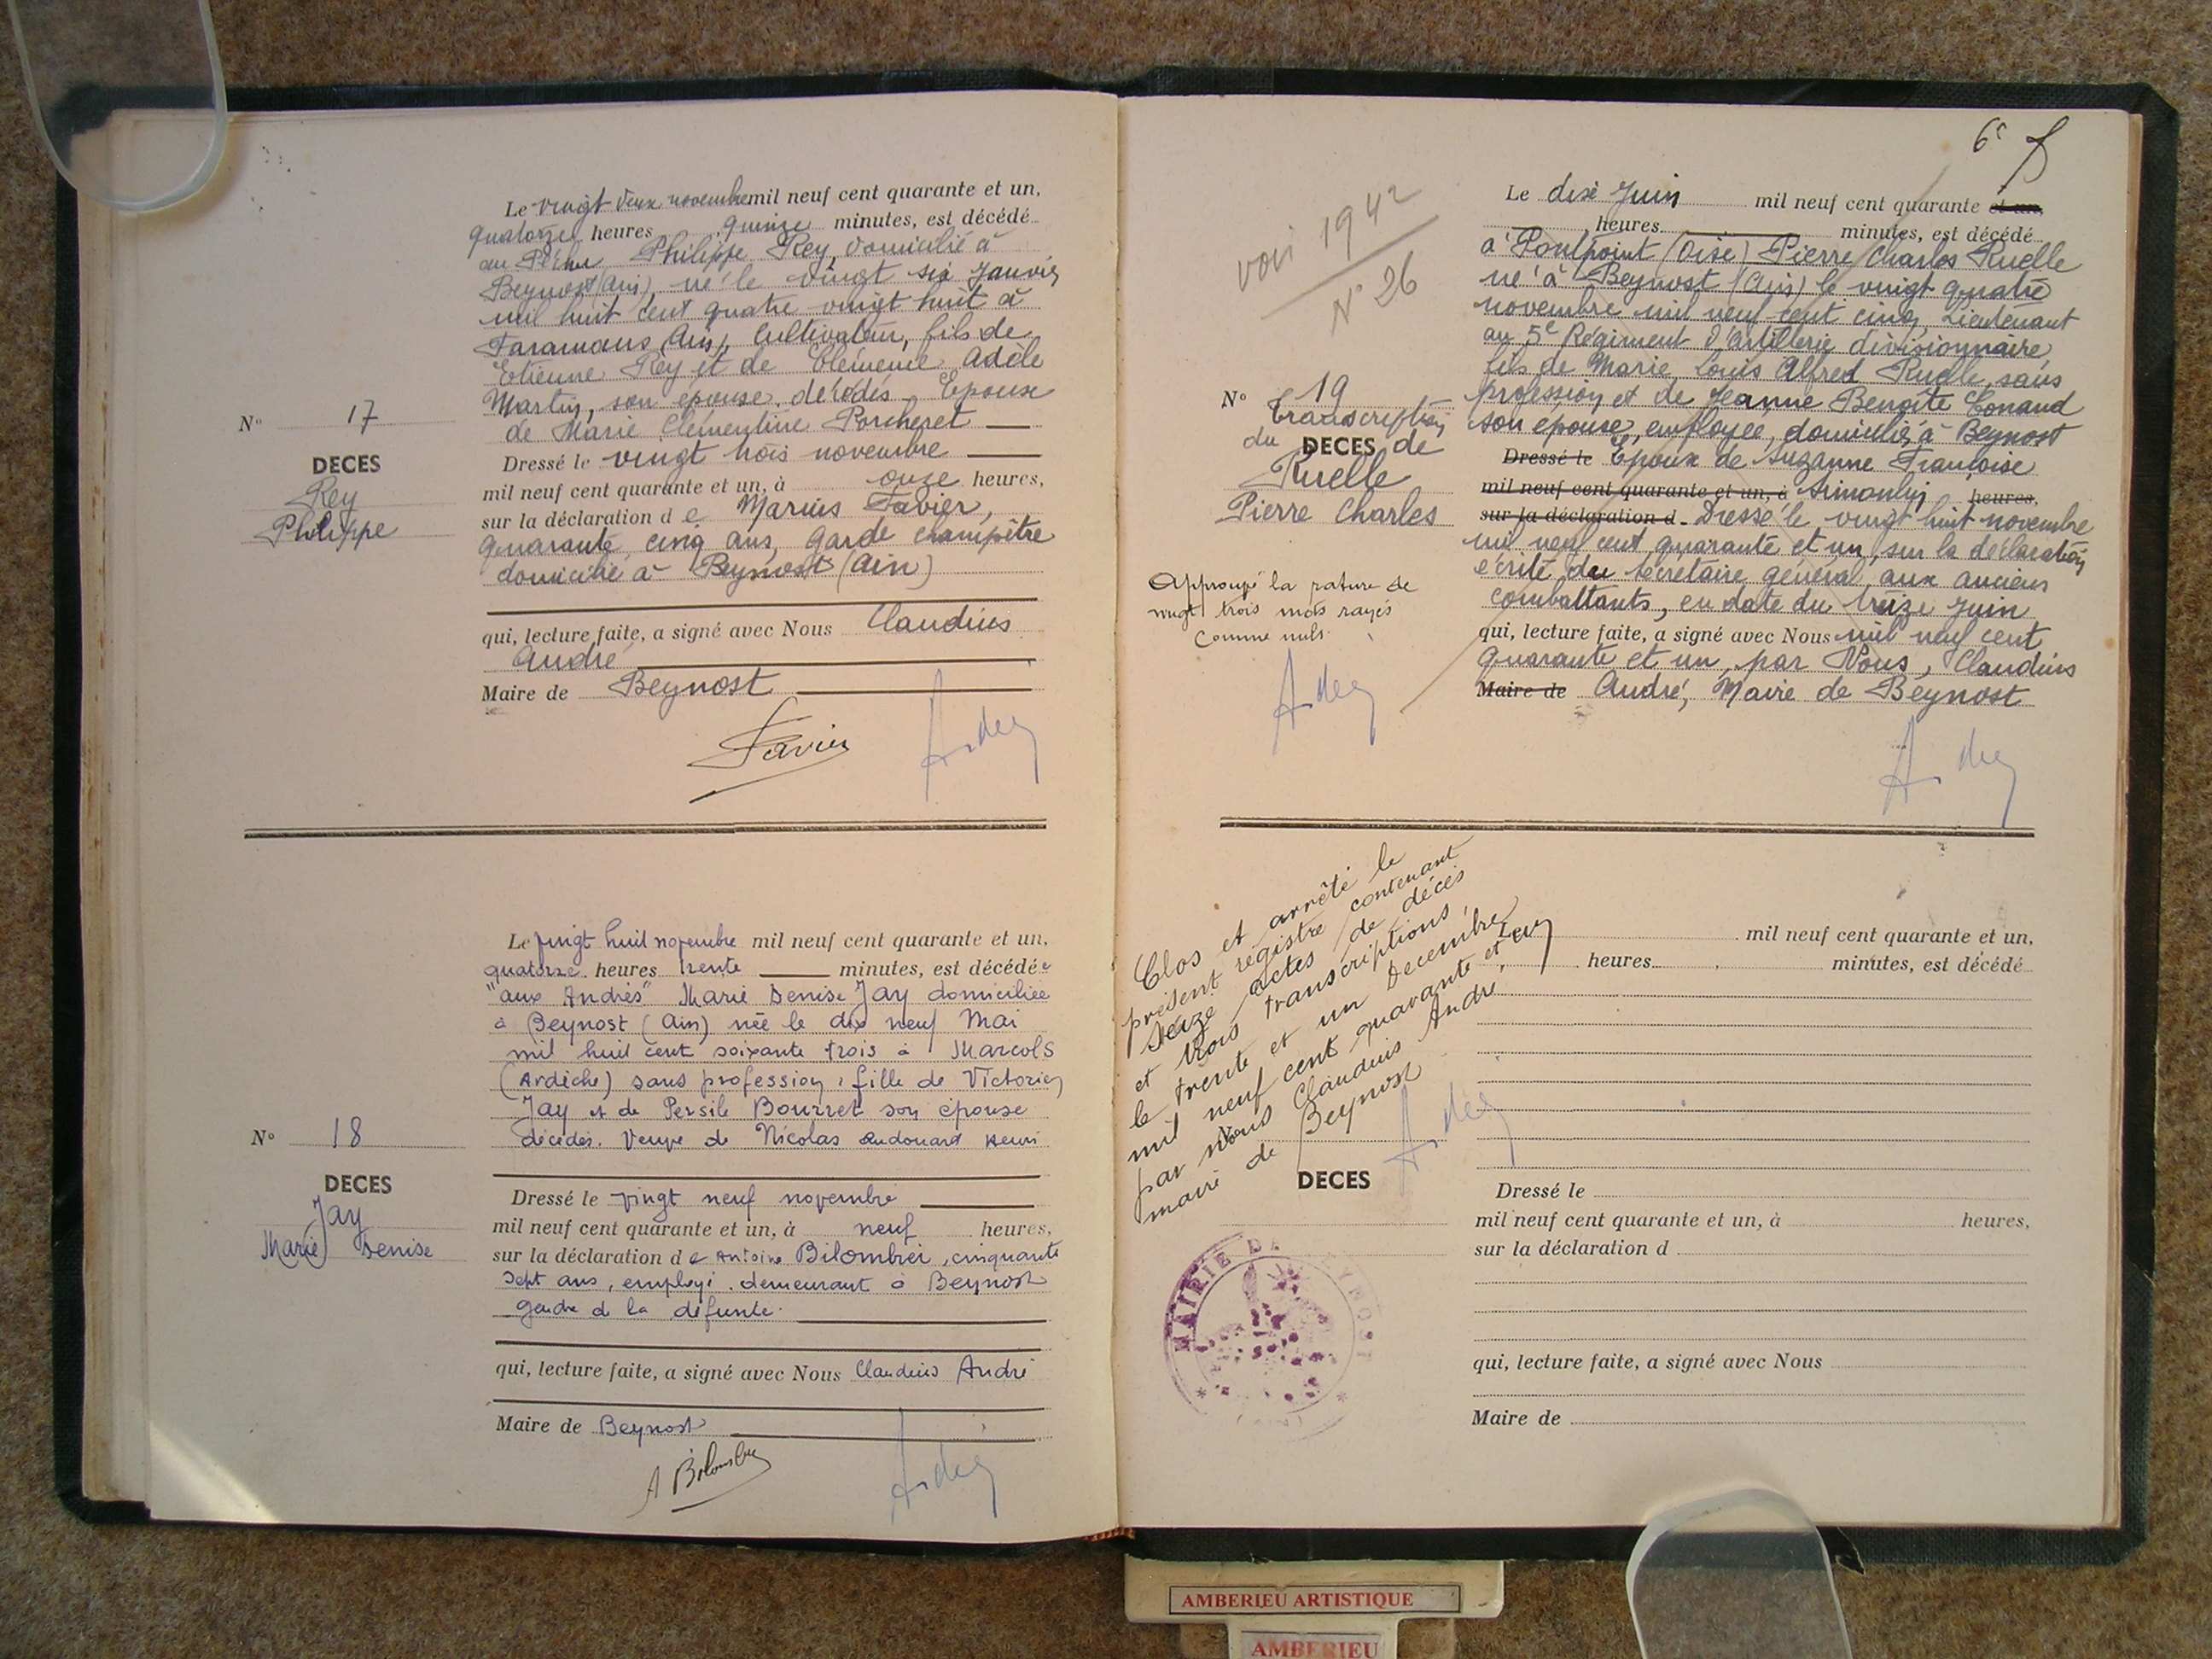 Le vingt deux novembre mil neuf cent quarante et un,
quatorze heures quinze minutes, est décédé
au Philippe Rey, domicilié à
Beynost (Ain), né le vingt six Janvier
mil huit cent quatre vingt huit à
Faramans (Ain), Cultivateur, fils de
Etienne Rey et de Clémence Adèle
Martin, son épouse, décédés. Epoux
de Marie Clémentine Porcheret
Nº 17
DECES
Rey
Philippe
Dressé le vingt trois novembre
mil neuf cent quarante et un, à onze heures,
sur la déclaration de Marius Favier,
quarante cinq ans, garde champêtre
domicilié à Beynost (Ain)
qui, lecture faite, a signé avec Nous Claudius
André
Maire de Beynost
Favier
André
Le vingt huit novembre mil neuf cent quarante et un,
quatorze heures trente minutes, est décédée
"aux Andrés" Marie Denise Jay domiciliée
à Beynost (Ain) née le dix neuf Mai
mil huit cent soixante trois à Marcols
(Ardèche) sans profession, fille de Victorien
Jay et de Persile Bourret son épouse
décédés. Veuve de Nicolas Audouard Henri
Nº 18
DECES
Jay
Marie Denise
Dressé le vingt neuf novembre
mil neuf cent quarante et un, à neuf heures,
sur la déclaration de Antoine Bilombrei, cinquante
sept ans, employé, demeurant à Beynost
gendre de la défunte.
qui, lecture faite, a signé avec Nous Claudius André
Maire de Beynost
A Bilombrei
André
6e
voir 1942
N° 26
Le dix Juin mil neuf cent quarante et un,
heures minutes, est décédé
à Pontpoint (Oise) Pierre Charles Ruelle
né à Beynost (Ain) le vingt quatre
novembre mil neuf cent cinq, Lieutenant
au 5e Régiment d'artillerie divisionnaire,
fils de Marie Louis Alfred Ruelle, sans
profession et de Jeanne Benoîte Conand
son épouse, employée, domiciliés à Beynost
Nº 19
transcription
du DECES de
Ruelle
Pierre Charles
Dressé le Epoux de Suzanne Françoise
mil neuf cent quarante et un, à Simonhin heures,
sur la déclaration d Dressé le vingt huit novembre
mil neuf cent quarante et un, sur la déclaration
écrite du secrétaire général aux anciens
combattants, en date du treize Juin
qui, lecture faite, a signé avec Nous mil neuf cent
quarante et un, par Nous, Claudius
Maire de André, Maire de Beynost
Approuvé la rature de
vingt trois mots rayés
comme nuls.
André
André
Clos et arrêté le
présent registre contenant
seize actes de décès
et trois transcriptions,
le trente et un Décembre
mil neuf cent quarante et un
par Nous Claudius André,
maire de Beynost
André
Le mil neuf cent quarante et un,
heures minutes, est décédé
Nº
DECES
Dressé le
mil neuf cent quarante et un, à heures,
sur la déclaration d
qui, lecture faite, a signé avec Nous
Maire de
MAIRIE DE BEYNOST
(AIN)
AMBERIEU ARTISTIQUE
AMBERIEU